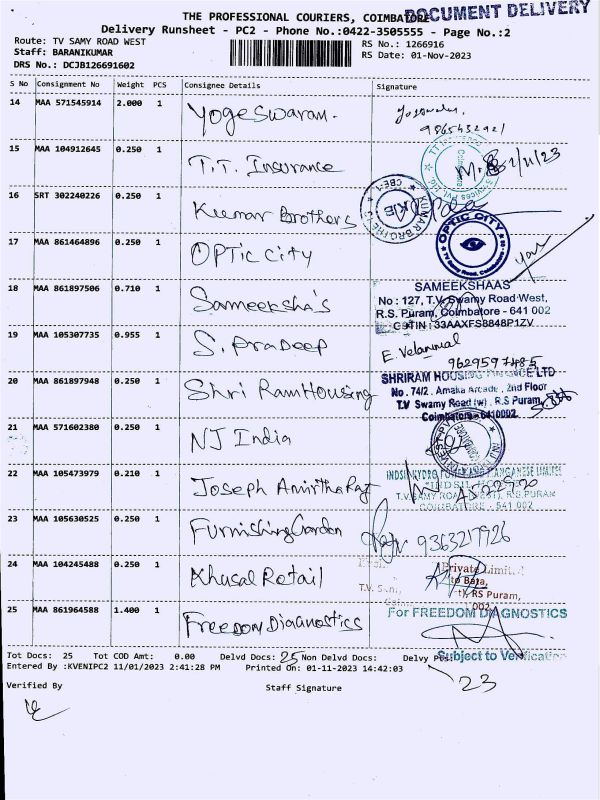 THE PROFESSIONAL COURIERS, COIMBATORE
DOCUMENT DELIVERY
Delivery Runsheet - PC2 - Phone No.:0422-3505555 - Page No.:2
Route: TV SAMY ROAD WEST
RS No.: 1266916
Staff: BARANIKUMAR
RS Date: 01-Nov-2023
DRS No.: DCJB126691602
S No Consignment No Weight PCS Consignee Details Signature
14 MAA 571545914 2.000 1 Yogeswaran.
9865432921
15 MAA 104912645 0.250 1 T.T. Insurance
16 SRT 302240226 0.250 1 Kumar Brothers
17 MAA 861464896 0.250 1 OPTIC CITY
OPTIC CITY
18 MAA 861897506 0.710 1 Sameeksha's
SAMEEKSHAAS
No : 127, T.V. Swamy Road West,
R.S. Puram, Coimbatore - 641 002
GSTIN : 33AAXFS8848P1ZV
19 MAA 105307735 0.955 1 S. Pradeep
E. Velammal
9629597485
20 MAA 861897948 0.250 1 Shri RamHousing
SHRIRAM HOUSING FINANCE LTD
No. 74/2, Amaka Arcade, 2nd Floor
T.V Swamy Road (w), R.S Puram,
Coimbatore - 6410002
21 MAA 571602380 0.250 1 NJ India
22 MAA 105473979 0.210 1 Joseph AmirthaRaj
INDSIL HYDRO POWER AND MANGANESE LIMITED
INDSIL HOUSE
T.V. SAMY ROAD (WEST), R.S. PURAM
COIMBATORE - 641 002
23 MAA 105630525 0.250 1 FurnishingGarden
9363217926
24 MAA 104245488 0.250 1 Khusal Retail
Private Limited
to Bata,
RS Puram,
25 MAA 861964588 1.400 1 Freedom Diagnostics
For FREEDOM DIAGNOSTICS
Tot Docs: 25 Tot COD Amt: 0.00 Delvd Docs: 25 Non Delvd Docs: Delvy Ps:
Subject to Verification
Entered By :KVENIPC2 11/01/2023 2:41:28 PM Printed On: 01-11-2023 14:42:03
23
Verified By Staff Signature